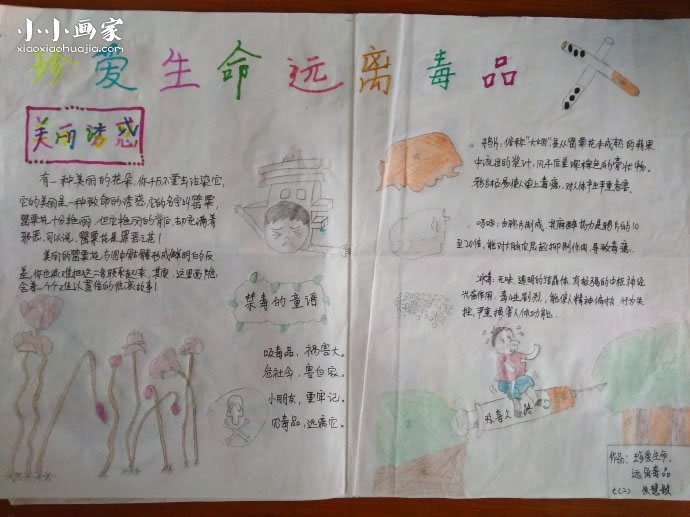 小小画家
xiaoxiaohuajia.com
珍爱生命远离毒品
美丽诱惑
有一种美丽的花朵,你千万不要去沾染它,
它的美丽是一种致命的诱惑,它的名字叫罂粟,
罂粟花十分艳丽,但它艳丽的背后,却充满着
邪恶,可以说,罂粟花是罪恶之花!
美丽的罂粟花,与图中骷髅形成鲜明的反
差,你也很难把这二者联系起来,其实,这里面隐
含着一个个令人震惊的悲哀故事!
禁毒的童谣
吸毒品,祸害大。
危社会,害自家。
小朋友,要牢记。
毒品,远离它。
鸦片:俗称“大烟”是从罂粟花未成熟的蒴果
中流出的浆汁,风干后呈深棕色的膏状物。
鸦片极易使人染上毒瘾,对人体产生严重危害。
吗啡:由鸦片制成,其麻醉药力是鸦片的10
至20倍,能对大脑皮层起抑制作用,导致毒瘾。
冰毒:无味,透明的结晶体,有极强的中枢神经
兴奋作用,毒性剧烈,能使人精神偏执,行为失
控,严重损害人体功能。
吸毒之路
作品:珍爱生命,
远离毒品
七(2) 朱慧敏